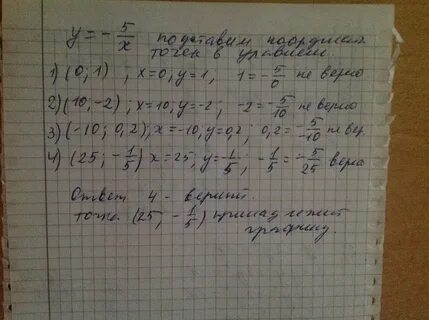 y = - 5/x подставим координаты
точек в уравнение
1) (0, 1) ; x=0, y=1, 1 = - 5/0 не верно
2) (10, -2) ; x=10, y=-2 ; -2 = - 5/10 не верно
3) (-10; 0,2), x=-10, y=0,2; 0,2 = - 5/-10 не вер.
4) (25; - 1/5) x=25, y=- 1/5; - 1/5 = - 5/25 верно
Ответ 4 - верный
точка (25, - 1/5) принадлежит
графику.